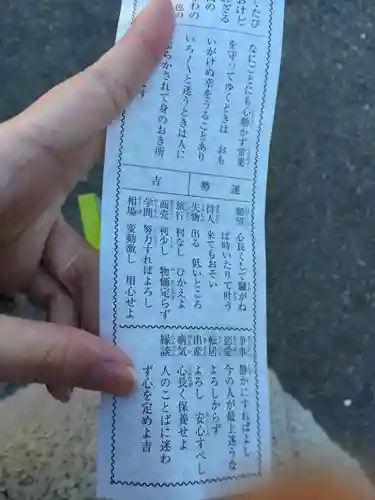 なにごとにも心動かず常業
を守ってゆくときは　おも
いがけぬ幸をうることあり
いろ〱と迷うときは人に
らかされて身のおき所
です
運勢　吉
願望　心長くして騒がね
ば時いたりて叶う
待人　来ておそい
失物　出る　低いところ
旅行　利なし　ひかえよ
商売　利少し　物価定らず
学問　努力すればよろし
相場　変動激し　用心せよ
争事　静かにすればよし
恋愛　今の人が最上迷うな
転居　よろしからず
出産　よろし　安心すべし
病気　心長く保養せよ
縁談　人のことばに迷わ
ず心を定めよ吉